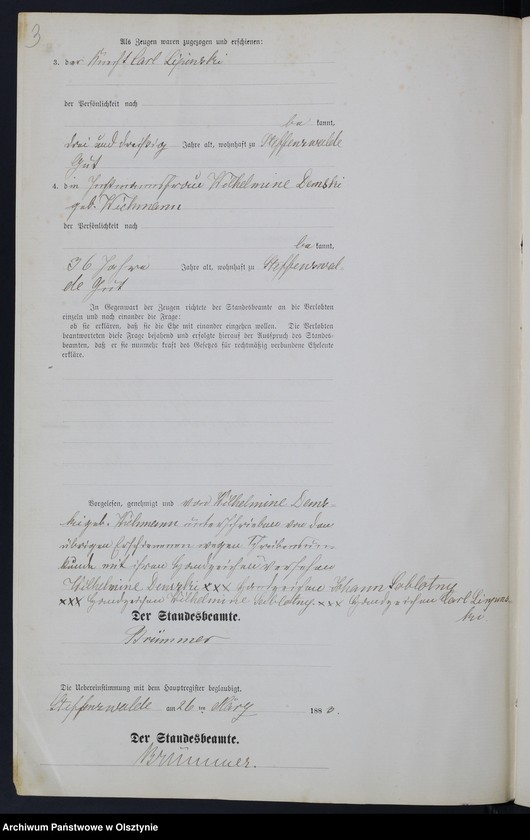 3
Als Zeugen waren zugezogen und erschienen:
3. der Knecht Carl Lipinski
der Persönlichkeit nach
be kannt,
drei und dreißig Jahre alt, wohnhaft zu Steffenswalde
Gut
4. die Instmannsfrau Wilhelmine Demski
geb. Wichmann
der Persönlichkeit nach
be kannt,
36 Jahre Jahre alt, wohnhaft zu Steffenswal-
de Gut
In Gegenwart der Zeugen richtete der Standesbeamte an die Verlobten
einzeln und nach einander die Frage:
ob sie erklären, daß sie die Ehe mit einander eingehen wollen. Die Verlobten
beantworteten diese Frage bejahend und erfolgte hierauf der Ausspruch des Standes-
beamten, daß er sie nunmehr kraft des Gesetzes für rechtmäßig verbundene Eheleute
erkläre.
Vorgelesen, genehmigt und von Wilhelmine Dems-
ki geb. Wichmann unterschrieben von den
übrigen Erschienenen wegen Schreibensun-
kunde mit ihren Handzeichen versehen
Wilhelmine Demzki xxx Handzeichen Johann Soblotny
xxx Handzeichen Wilhelmine Soblotny. xxx Handzeichen Carl Lipins-
ki
Der Standesbeamte.
Brümmer
Die Uebereinstimmung mit dem Hauptregister beglaubigt.
Steffenswalde am 26 ten März 1880.
Der Standesbeamte.
Brümmer.
Archiwum Państwowe w Olsztynie